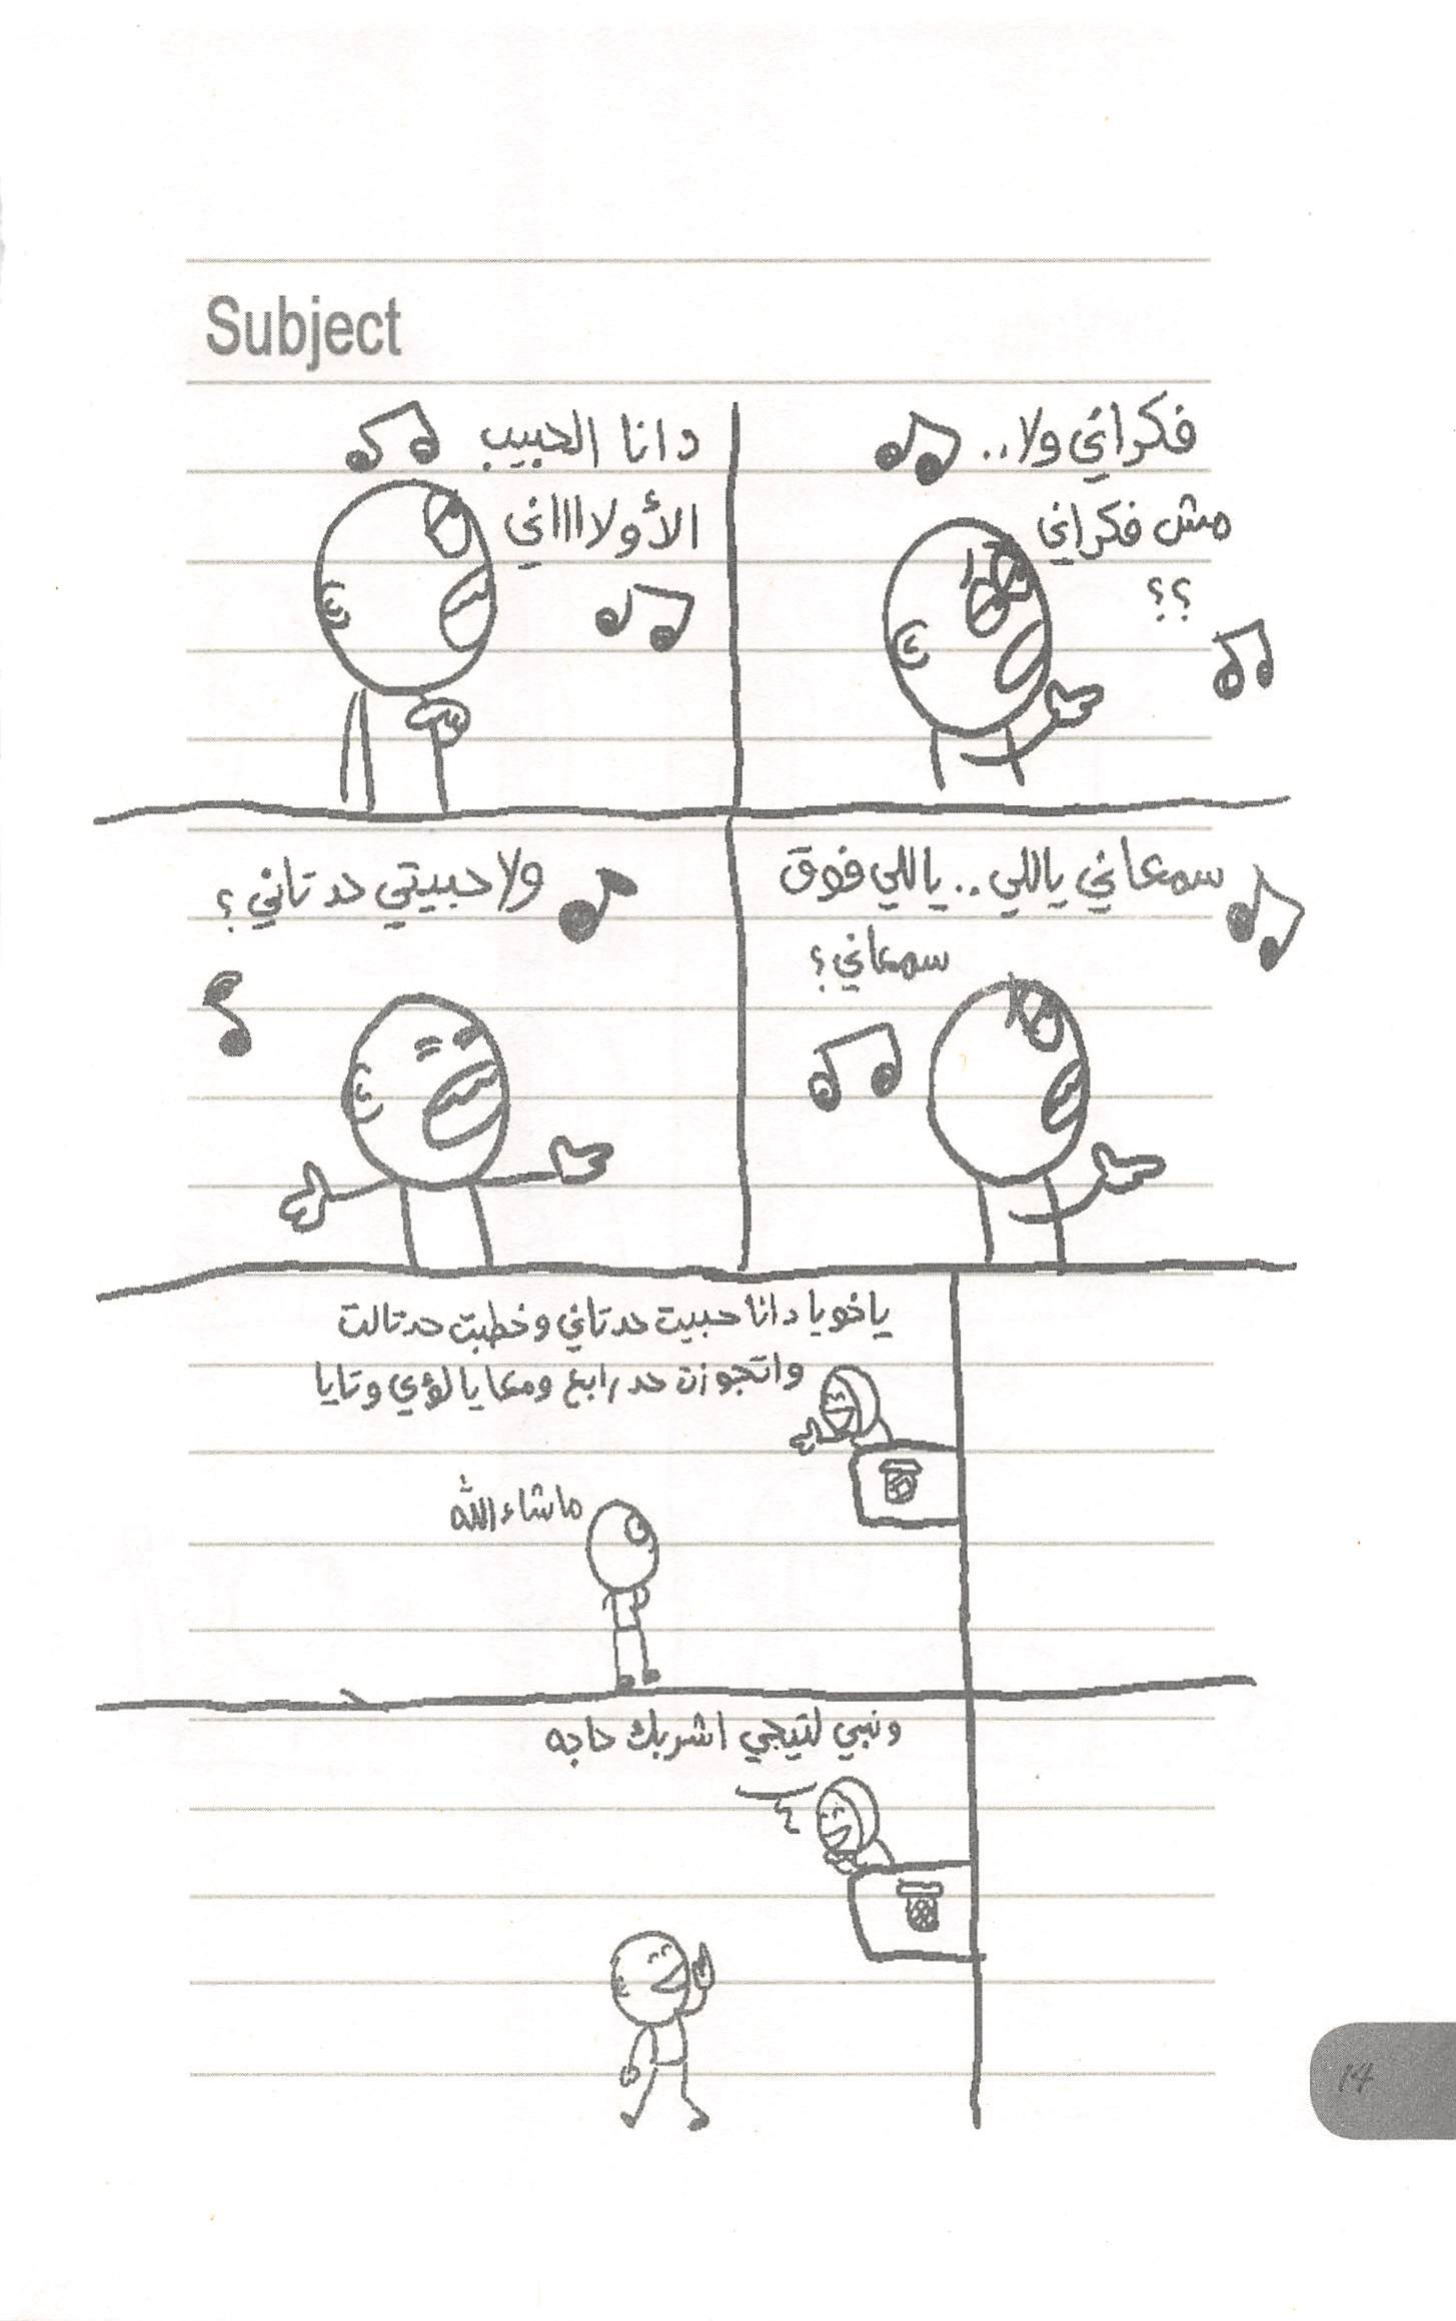 Subject
فكراني ولا..
مش فكراني
؟؟
دانا الحبيب
الأولااااني
سمعاني ياللي.. ياللي فوق
سمعاني؟
ولا حبيتي حد تاني؟
ياخويا دانا حبيت حد تاني وخطبت حد تالت
واتجوزت حد رابع ومعايا لؤي وتايا
ماشاء الله
ونبي لتيجي اشربك حاجه
14